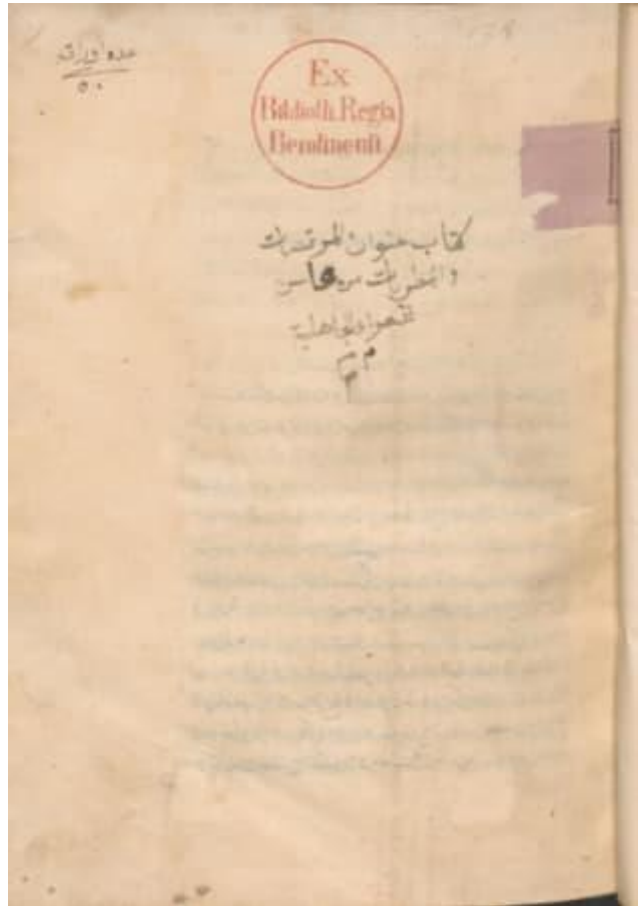 عدد اوراق
٥٠
Ex
Biblioth. Regia
Berolinensi.
كتاب عنوان المرقصات
والمطربات من محاسن
شعراء الجاهلية